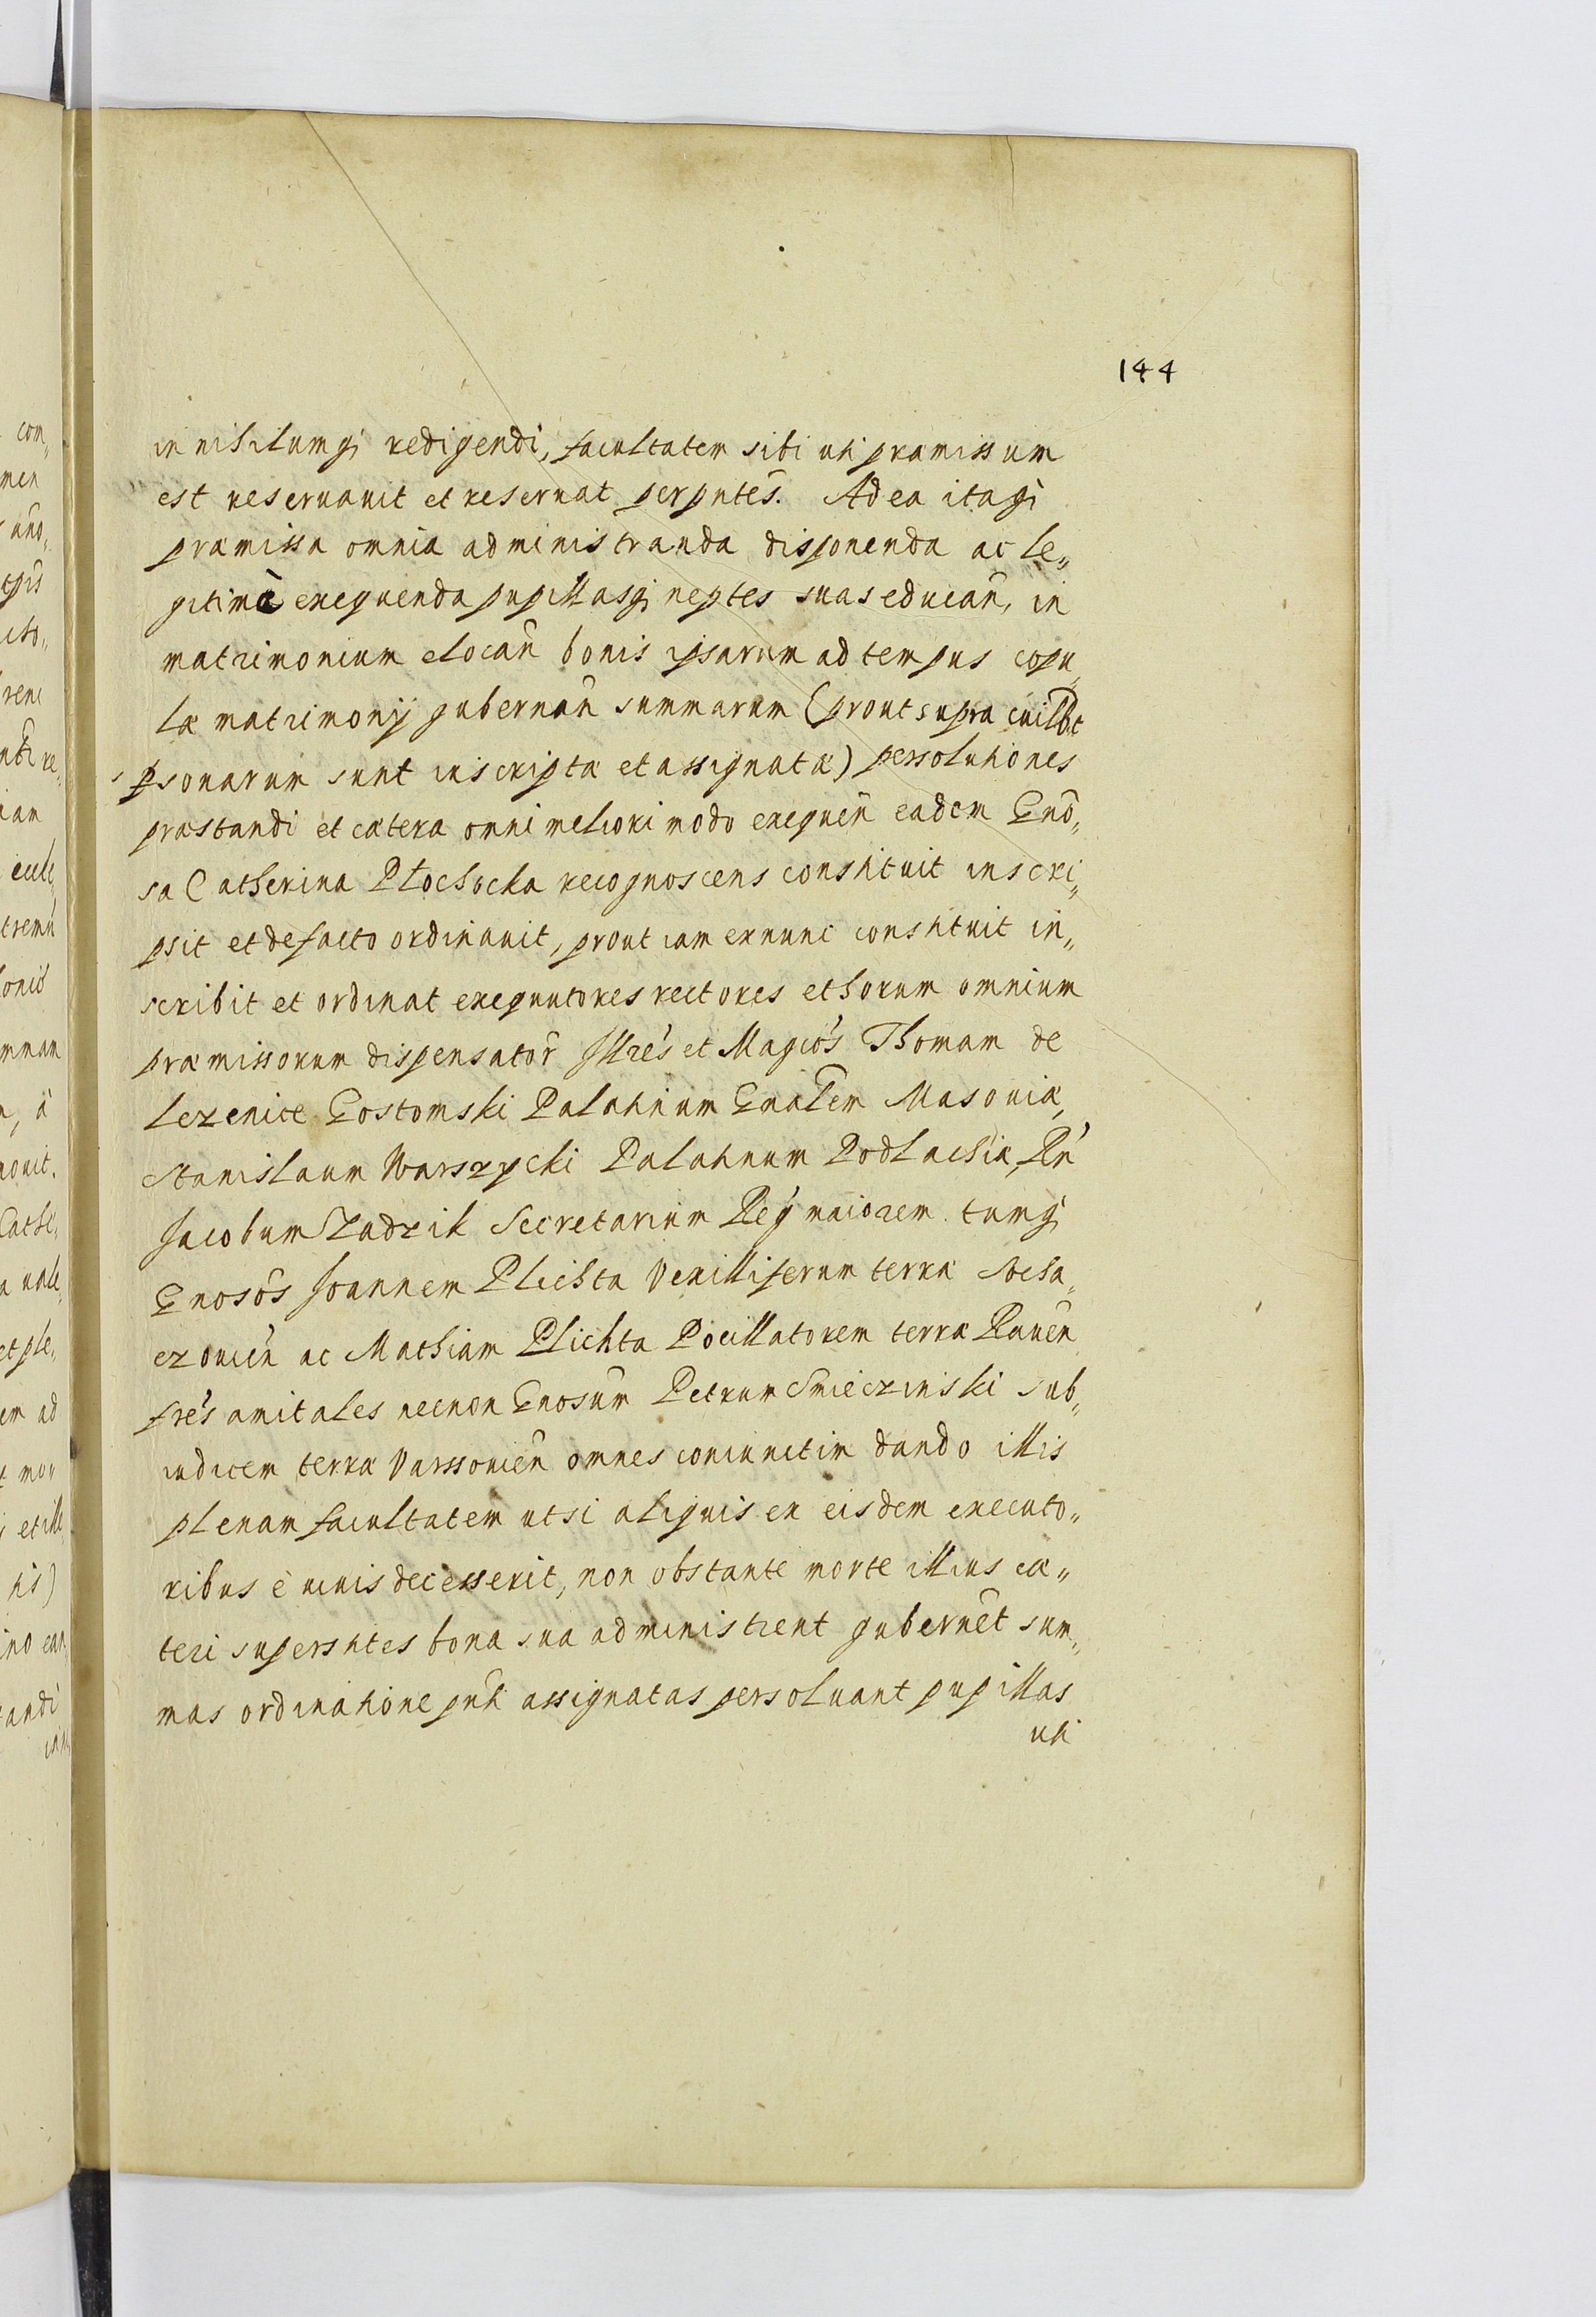 144
in nihilumq̃ redigendi, facultatem sibi uti præmissum
est reseruauit et reseruat per pñtes. Ad ea itaq̃
præmissa omnia administranda disponenda ac le„
gitimè exequenda pupillasq̃ neptes suas educan̄, in
matrimonium elocan̄ bonis ipsarum ad tempus copu„
læ matrimonij gubernan̄ summarum (prout supra cuilbt
psonarum sunt inscriptæ et assignatæ) persolutiones
præstandi et cætera omni meliori modo exequen̄ eadem Gñō„
sa Catherina Płochocka recognoscens constituit inscri„
psit et de facto ordinauit, prout iam ex nunc constituit in„
scribit et ordinat exequutores rectores et horum omnium
præmissorum dispensator̄ Illrēs et Magcōs Thomam de
Lezenice Gostomski Palatinum Gnałem Masouiæ,
Stanislaum Warszycki Palatinum Podlachiæ, Rn̄
Jacobum Zadzik Secretarium Reg̃ maiorem tumq̃
Gnosōs Joannem Plichta Vexilliferum terræ Socha„
czouien̄ ac Mathiam Plichta Pocillatorem terræ Rauen̄
frēs amitales necnon Gnosūm Petrum Smieczinski sub„
iudicem terræ Varssouien̄ omnes coniunctim dando illis
plenam facultatem ut si aliquis ex eisdem executo„
ribus è uiuis decesserit, non obstante morte illius cæ„
teri superstites bona sua administrent gubernēt sum„
mas ordinatione pñti assignatas persoluant pupillas
uti
com„
men